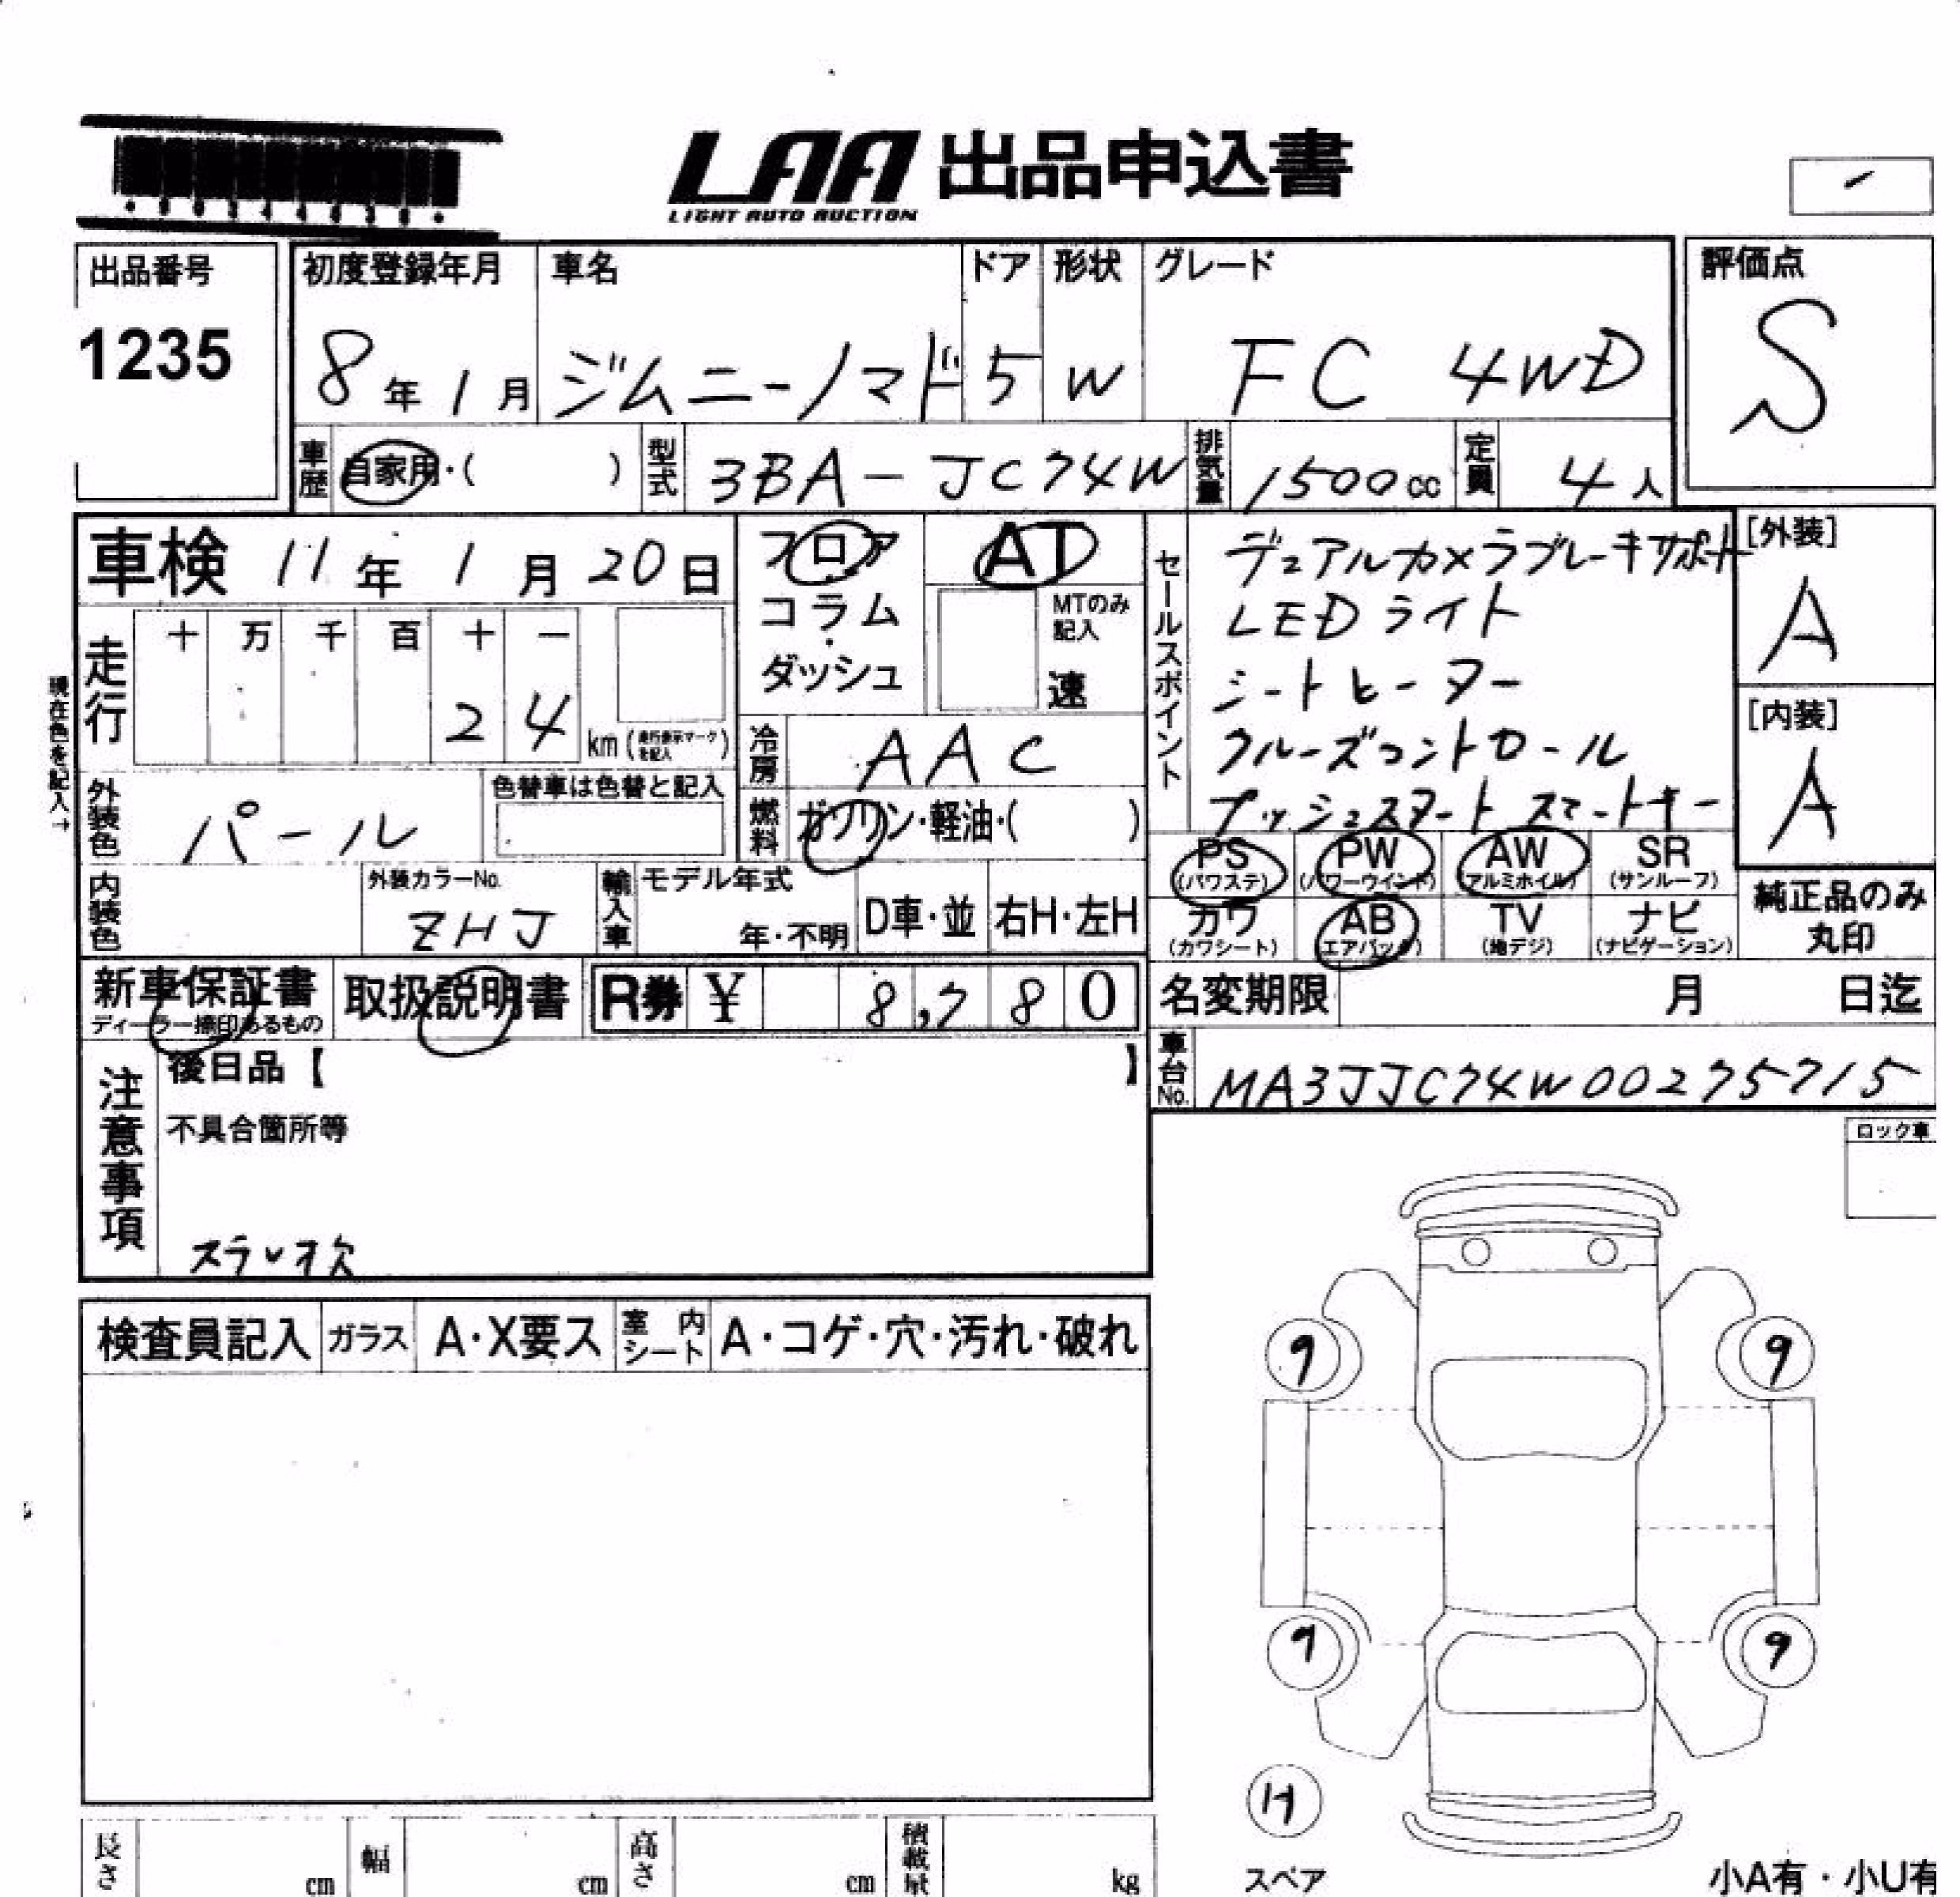 LAA 出品申込書
LIGHT AUTO AUCTION
出品番号
1235
初度登録年月
8年1月
車名
ジムニーノマド
ドア
5
形状
W
グレード
FC 4WD
評価点
S
車歴
自家用・( )
型式
3BA-JC74W
排気量
1500cc
定員
4人
車検 11年1月20日
フロア
コラム
・
ダッシュ
AT
MTのみ
記入
速
セールスポイント
デュアルカメラブレーキサポート
LEDライト
シートヒーター
クルーズコントロール
プッシュスタート スマートキー
[外装]
A
[内装]
A
現在色を記入→
走行
十 万 千 百 十 一
2 4
km(走行表示マークを記入)
冷房
AAC
外装色
パール
色替車は色替と記入
燃料
ガソリン・軽油・( )
PS
(パワステ)
PW
(パワーウインド)
AW
(アルミホイル)
SR
(サンルーフ)
カワ
(カワシート)
AB
(エアバッグ)
TV
(地デジ)
ナビ
(ナビゲーション)
純正品のみ
丸印
内装色
外装カラーNo.
ZHJ
輸入車
モデル年式
年・不明
D車・並
右H・左H
新車保証書
ディーラー捺印あるもの
取扱説明書
R券 ¥ 8,780
名変期限 月 日迄
車台No.
MA3JJC74W00275715
注意事項
後日品【 】
不具合箇所等
スラレオ欠
ロック車
検査員記入
ガラス
A・X要ス
室内シート
A・コゲ・穴・汚れ・破れ
9
9
9
9
スペア
長さ
cm
幅
cm
高さ
cm
積載量
kg
小A有・小U有